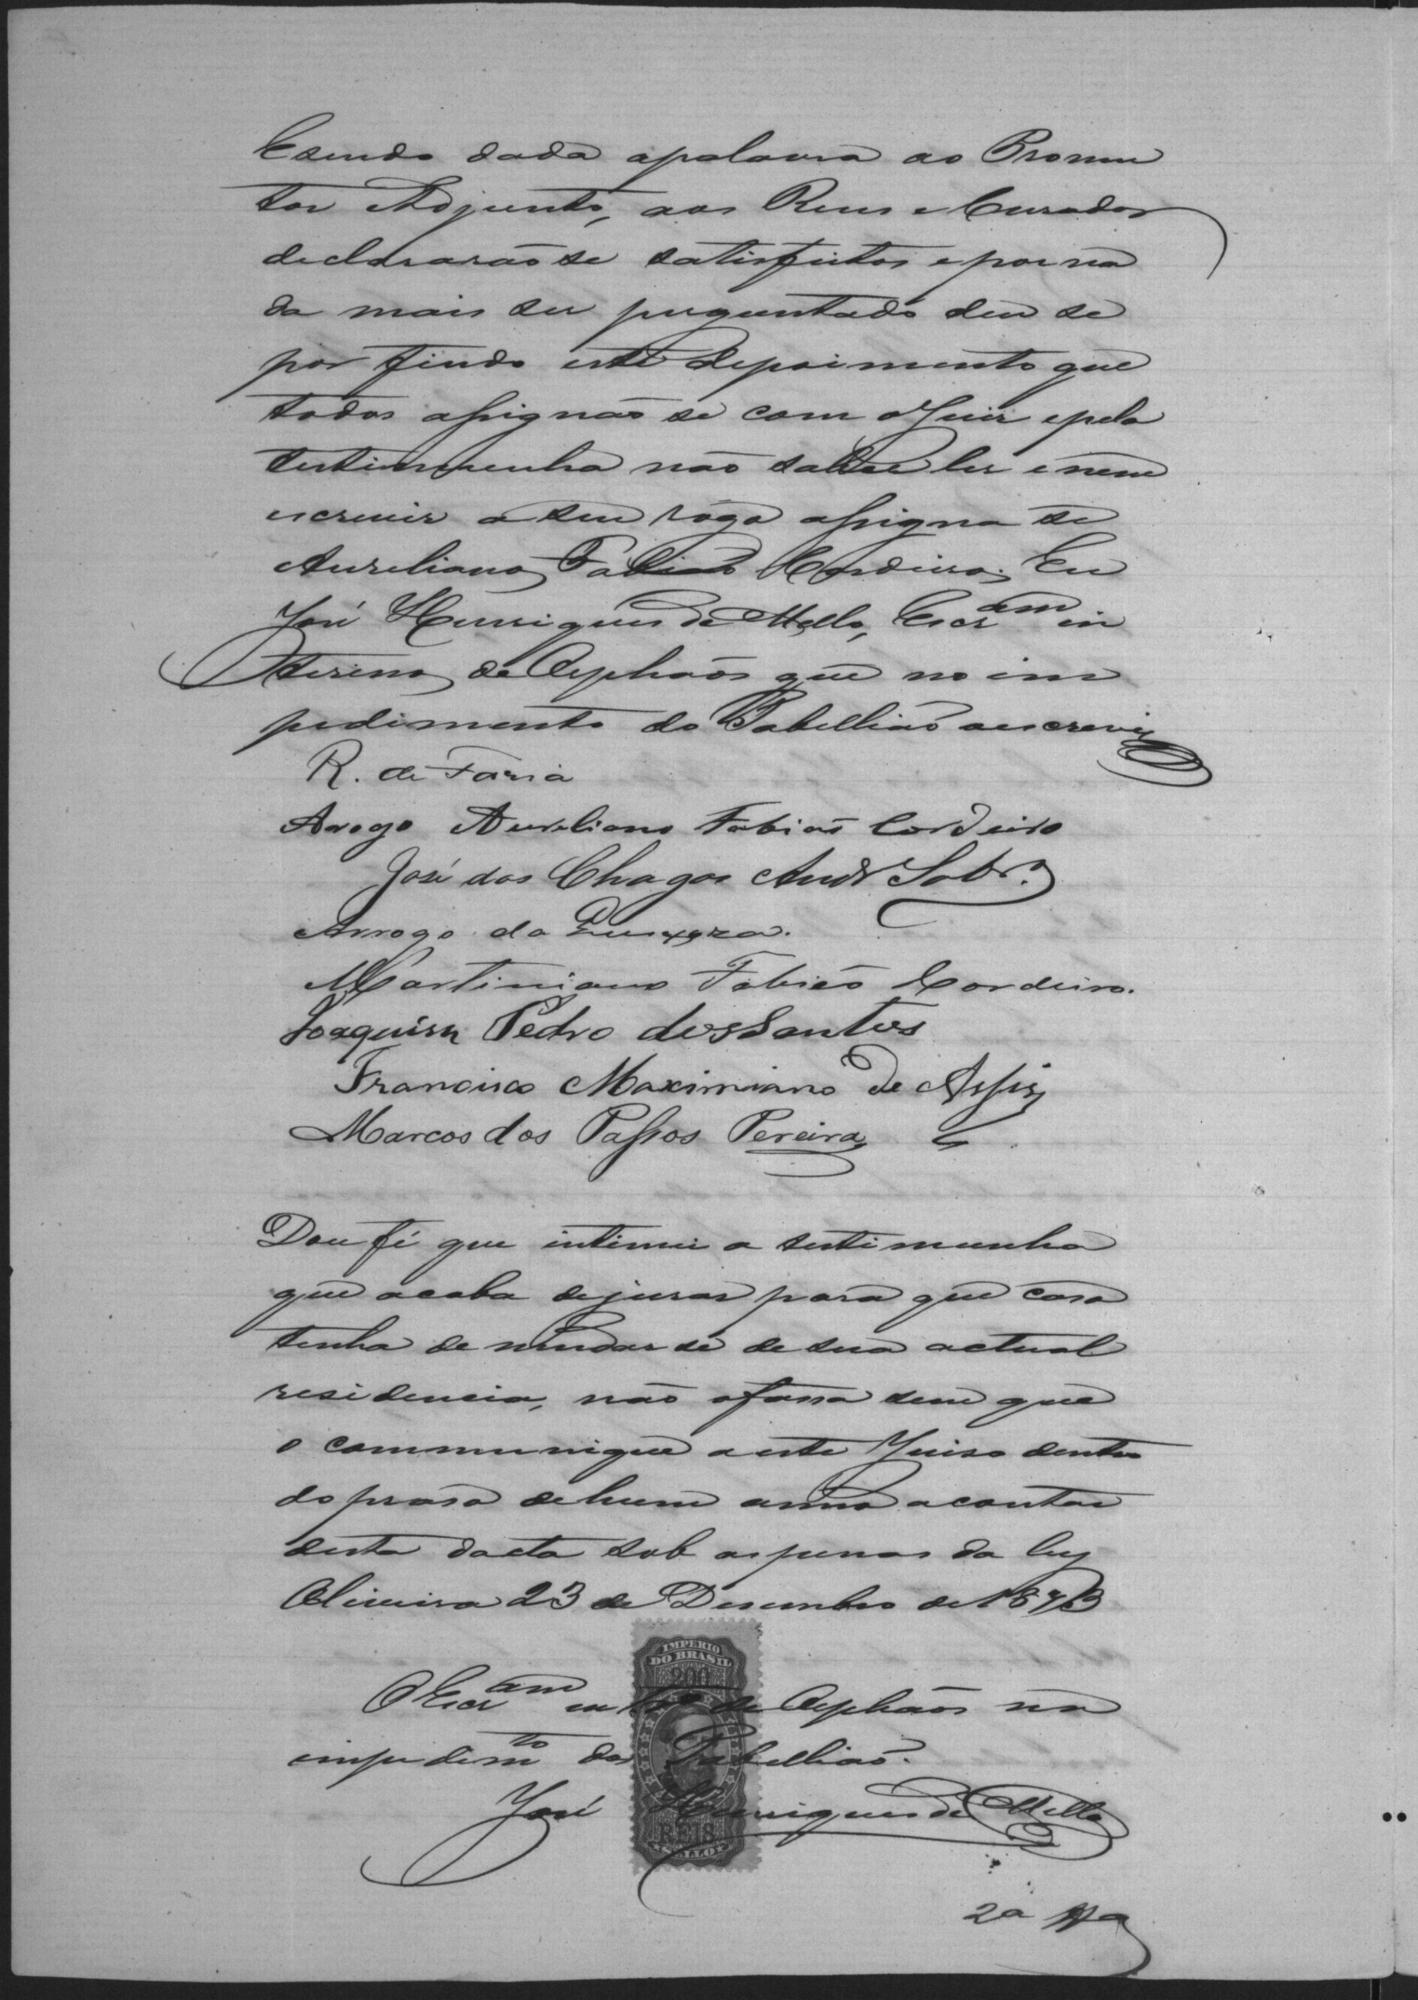 Esendo dada apalavra ao Promu
tor Adjunto, aos Reus e Curador
declararão se satisfeitos epor na
da mais ser preguntado deu se
por findo este depoimento que
todos assignão se com o Juis epela
testimunha não saber ler e nem
escrever a seu rogo assigna se
Aureliano Fabião Cordeiro, Eu
José Henriques de Mello, Escram in
terino de Orphãos que no im
pedimento do Tabellião aescrevi
R. de Faria
Arogo Aureliano Fabião Cordeiro
José das Chagas Andr Sobr.º
Arrogo da
Martiniano Fabião Cordeiro.
Joaquim Pedro dos Santos
Francisco Maximiano de Assis
Marcos dos Passos Pereira
Dou fé que intimei a testimunha
que acaba dejurar para que caso
tenha de mudar se de sua actual
residencia, não ofassa sem que
o communique a este Juiso dentro
do praso de hum anno acontar
desta dacta sob as penas da ley
Oliveira 23 de Desembro de 1873
IMPERIO
DO BRASIL
200
O Escram de Orphãos no
impedimto do Tabellião.
José Henriques de Mello
REIS
2ª